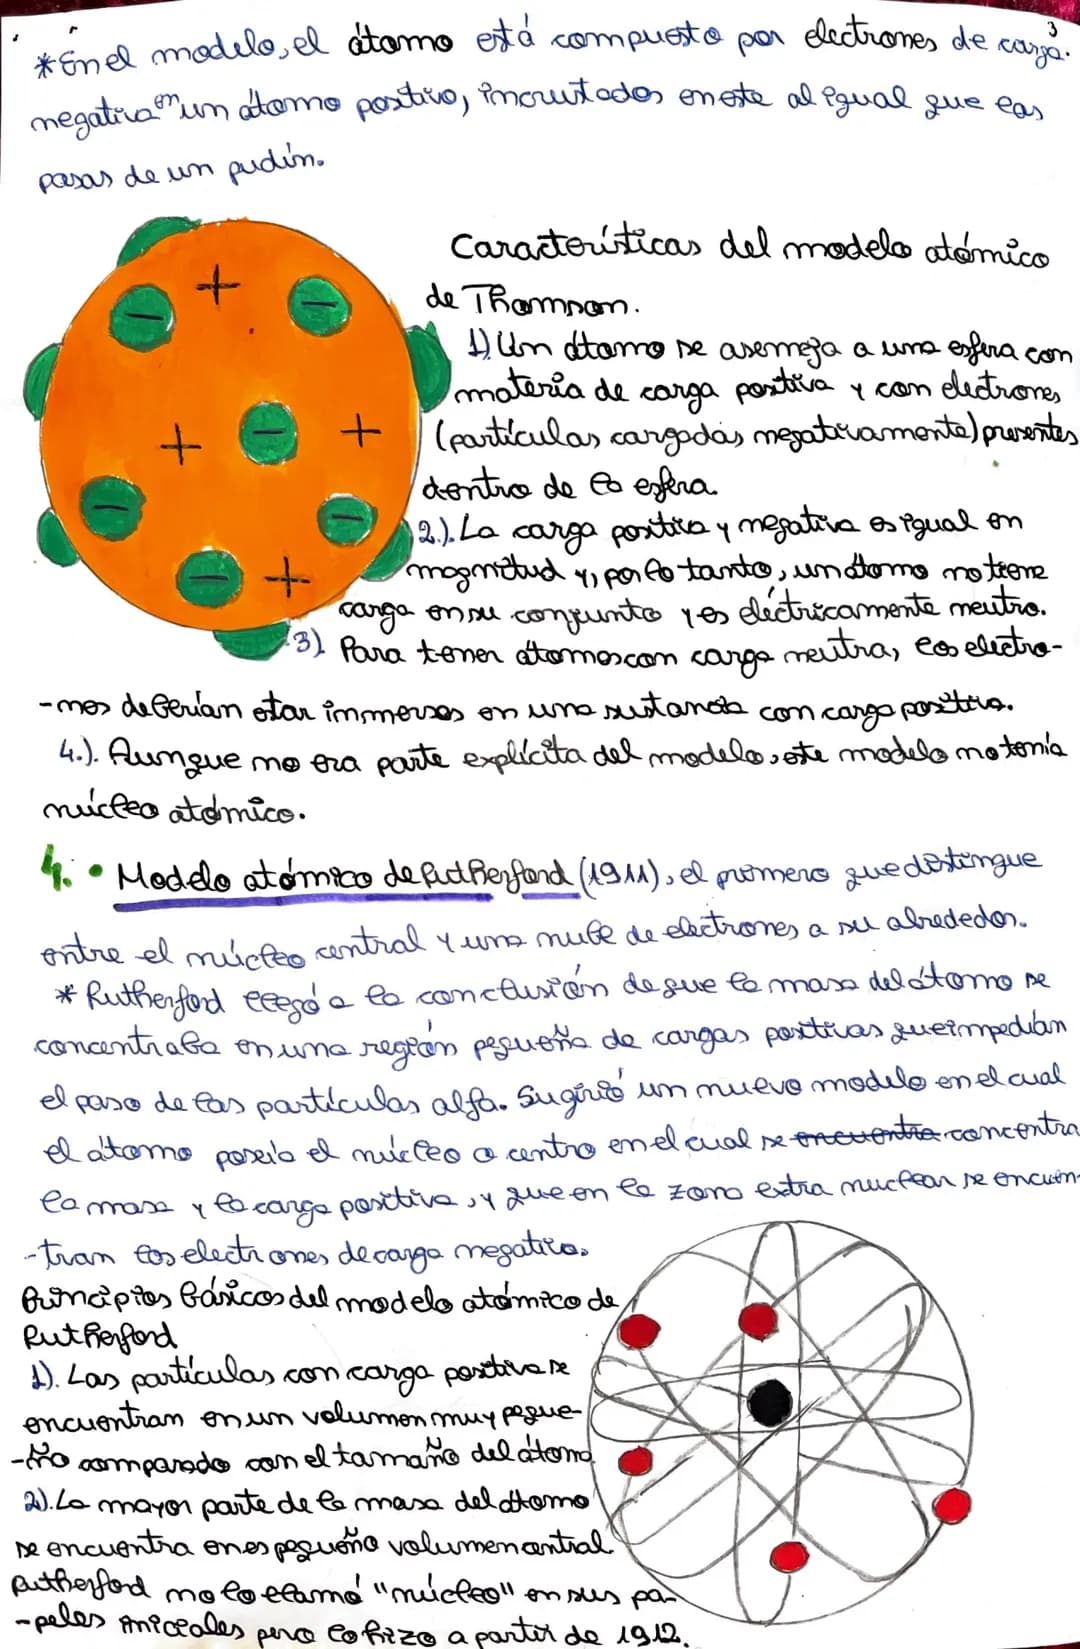 3
*En el modelo, el átomo está compuesto por electrones de carga.
negativa en un átomo positivo, incrustados en este al igual que las
pasas de un pudín.
Características del modelo atómico
de Thomson.
1) Un átomo se asemeja a una esfera con
materia de carga positiva y con electrones
(partículas cargadas negativamente) presentes
dentro de la esfera.
2.). La carga positiva y negativa es igual en
magnitud y, por lo tanto, un átomo no tiene
carga en su conjunto y es eléctricamente neutro.
3) Para tener átomos con carga neutra, los electro-
-nes deberían estar inmersos en una sustancia con carga positiva.
4.). Aunque no era parte explícita del modelo, este modelo no tenía
núcleo atómico.
4. • Modelo atómico de Rutherford (1911), el primero que distingue
entre el núcleo central y una nube de electrones a su alrededor.
* Rutherford llegó a la conclusión de que la masa del átomo se
concentraba en una región pequeña de cargas positivas que impedían
el paso de las partículas alfa. Sugirió un nuevo modelo en el cual
el átomo poseía el núcleo o centro en el cual se encuentra concentra
la masa y la carga positiva, y que en la zona extra nuclear se encuen-
-tran los electrones de carga negativa.
Principios básicos del modelo atómico de
Rutherford
1). Las partículas con carga positiva se
encuentran en un volumen muy peque-
-ño comparado con el tamaño del átomo
2). La mayor parte de la masa del átomo
se encuentra en es pequeño volumen central.
Rutherford no lo llamó "núcleo" en sus pa-
-peles iniciales pero lo hizo a partir de 1912.